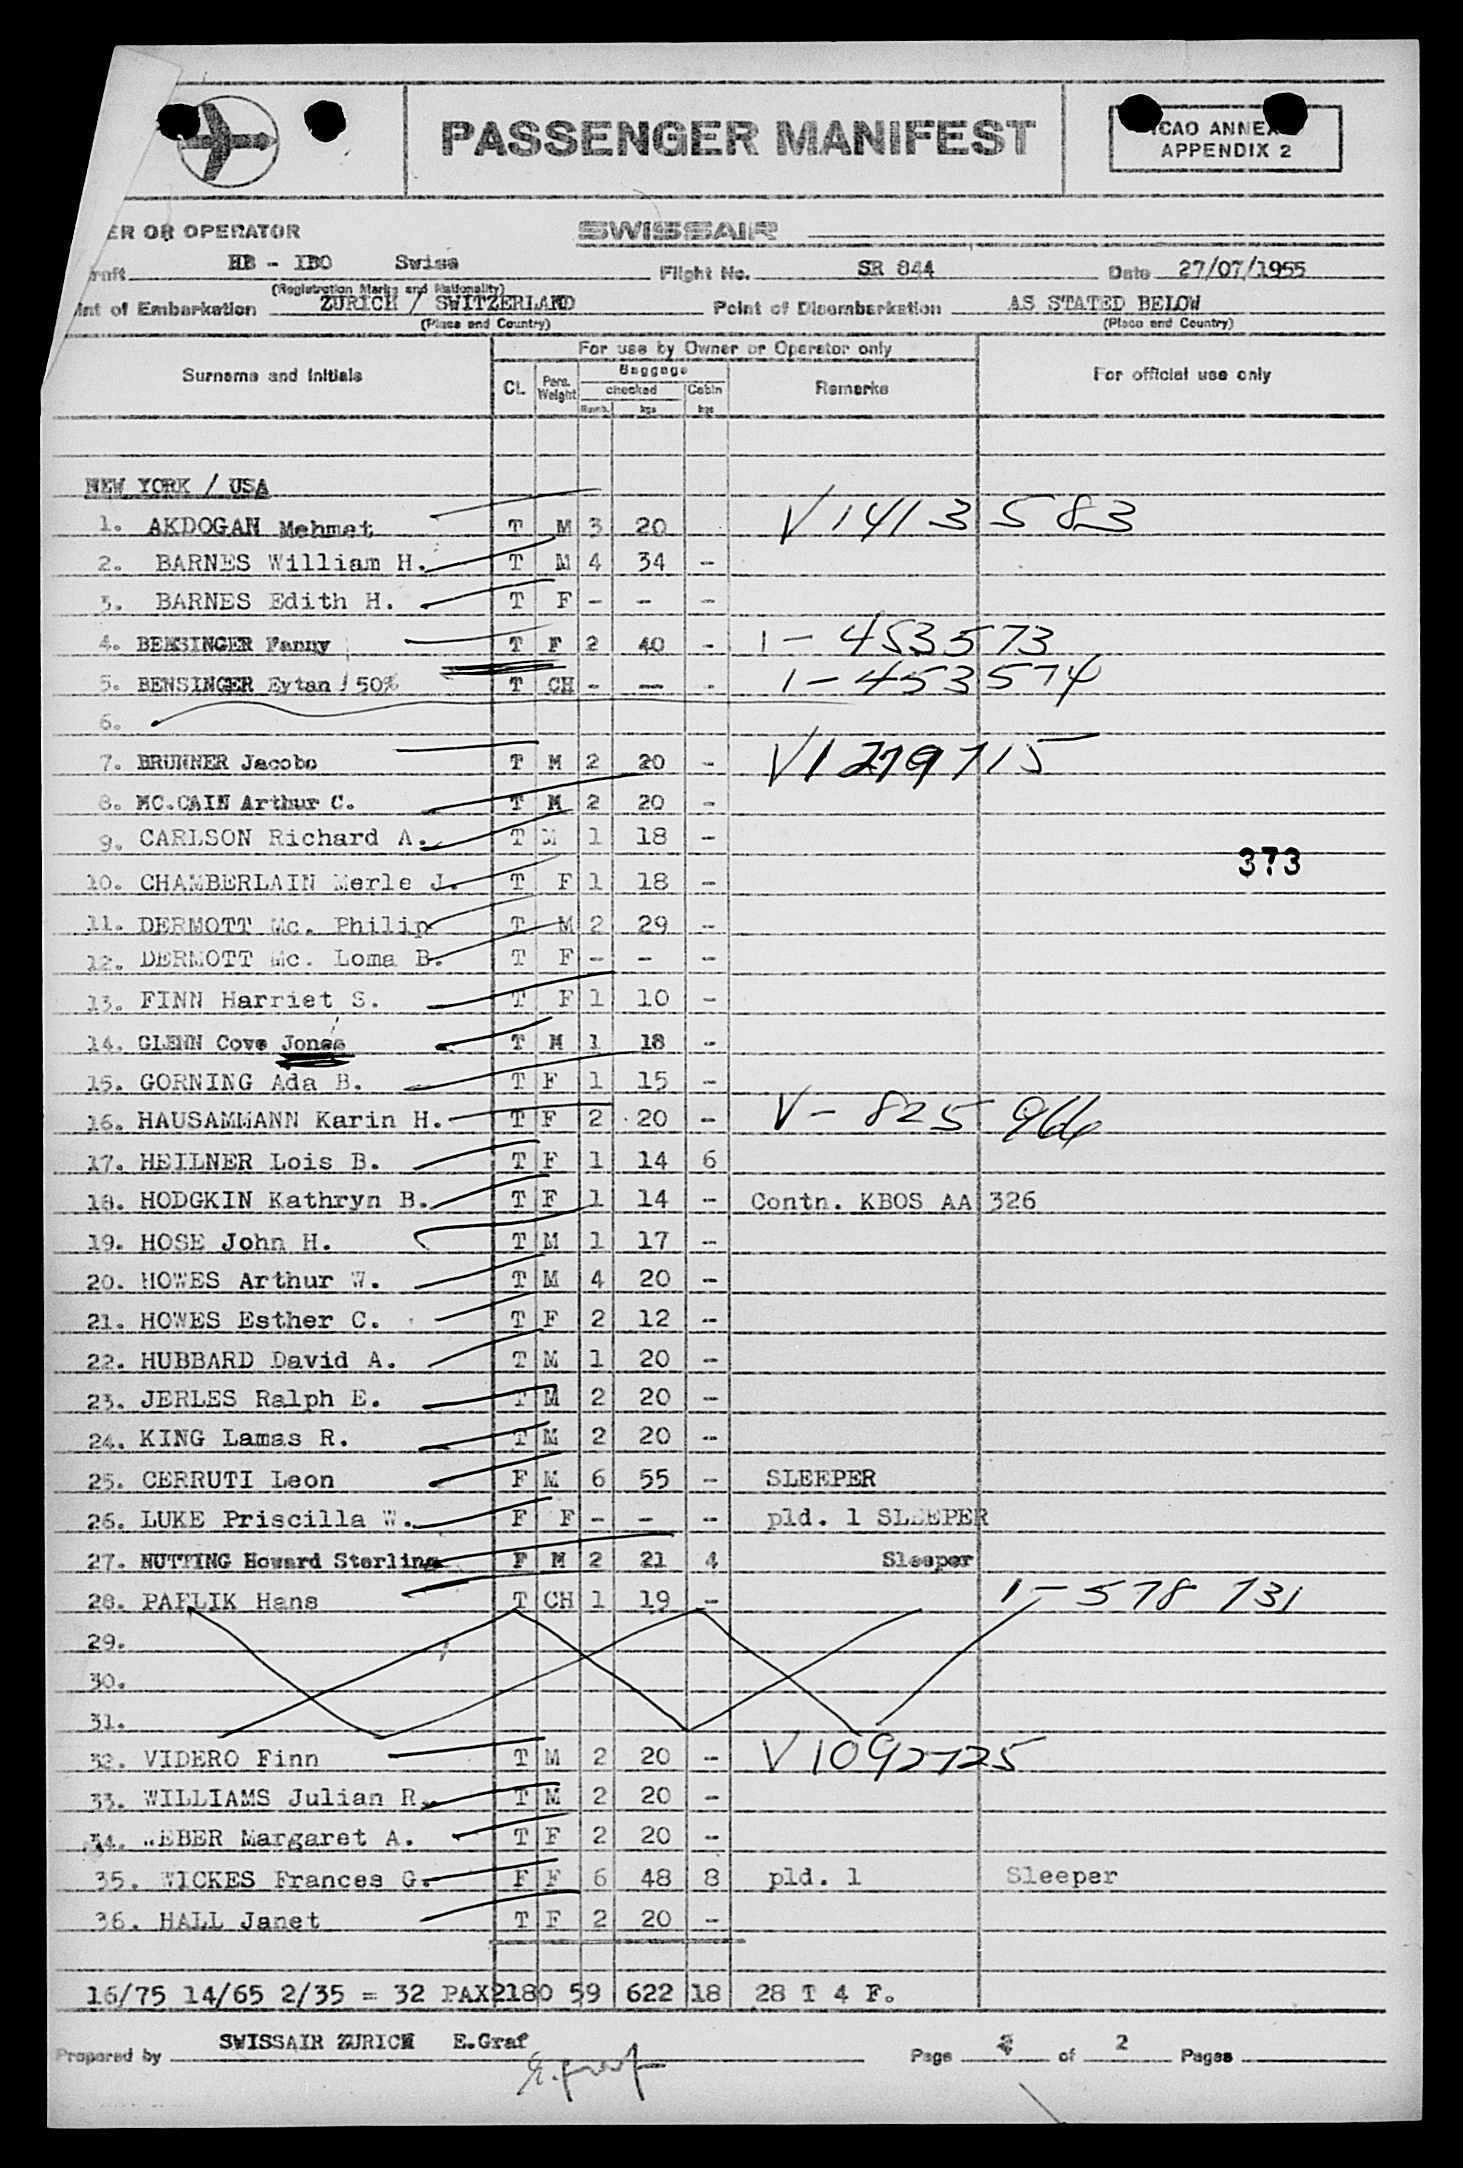 PASSENGER MANIFEST
ICAO ANNEX
APPENDIX 2
ER OR OPERATOR SWISSAIR
raft HB - IBO Swiss Flight No. SR 844 Date 27/07/1955
(Registration Marks and Nationality)
int of Embarkation ZURICH / SWITZERLAND Point of Disembarkation AS STATED BELOW
(Place and Country) (Place and Country)
For use by Owner or Operator only
Surname and Initials CL. Pers. Weight Baggage Remarks For official use only
checked Cabin
Numb. kgs kgs
NEW YORK / USA
1. AKDOGAN Mehmet T M 3 20 V 1413583
2. BARNES William H. T M 4 34 -
3. BARNES Edith H. T F - - -
4. BENSINGER Fanny T F 2 40 - 1-453573
5. BENSINGER Eytan / 50% T CH - - - 1-453574
6.
7. BRUNNER Jacobo T M 2 20 - V1279715
8. MC.CAIN Arthur C. T M 2 20 -
9. CARLSON Richard A. T M 1 18 -
373
10. CHAMBERLAIN Merle J. T F 1 18 -
11. DERMOTT Mc. Philip T M 2 29 -
12. DERMOTT Mc. Loma B. T F - - -
13. FINN Harriet S. T F 1 10 -
14. GLENN Cove Jones T M 1 18 -
15. GORNING Ada B. T F 1 15 -
16. HAUSAMMANN Karin H. T F 2 20 - V - 825966
17. HEILNER Lois B. T F 1 14 6
18. HODGKIN Kathryn B. T F 1 14 - Contn. KBOS AA 326
19. HOSE John H. T M 1 17 -
20. HOWES Arthur W. T M 4 20 -
21. HOWES Esther C. T F 2 12 -
22. HUBBARD David A. T M 1 20 -
23. JERLES Ralph E. T M 2 20 -
24. KING Lamas R. T M 2 20 -
25. CERRUTI Leon F M 6 55 - SLEEPER
26. LUKE Priscilla W. F F - - - pld. 1 SLEEPER
27. NUTTING Howard Sterling F M 2 21 4 Sleeper
28. PAFLIK Hans T CH 1 19 - 1-578 731
29.
30.
31.
32. VIDERO Finn T M 2 20 - V1092725
33. WILLIAMS Julian R. T M 2 20 -
34. WEBER Margaret A. T F 2 20 -
35. WICKES Frances G. F F 6 48 8 pld. 1 Sleeper
36. HALL Janet T F 2 20 -
16/75 14/65 2/35 = 32 PAX 2180 59 622 18 28 T 4 F.
Prepared by SWISSAIR ZURICH E.Graf Page of 2 Pages
E. Graf